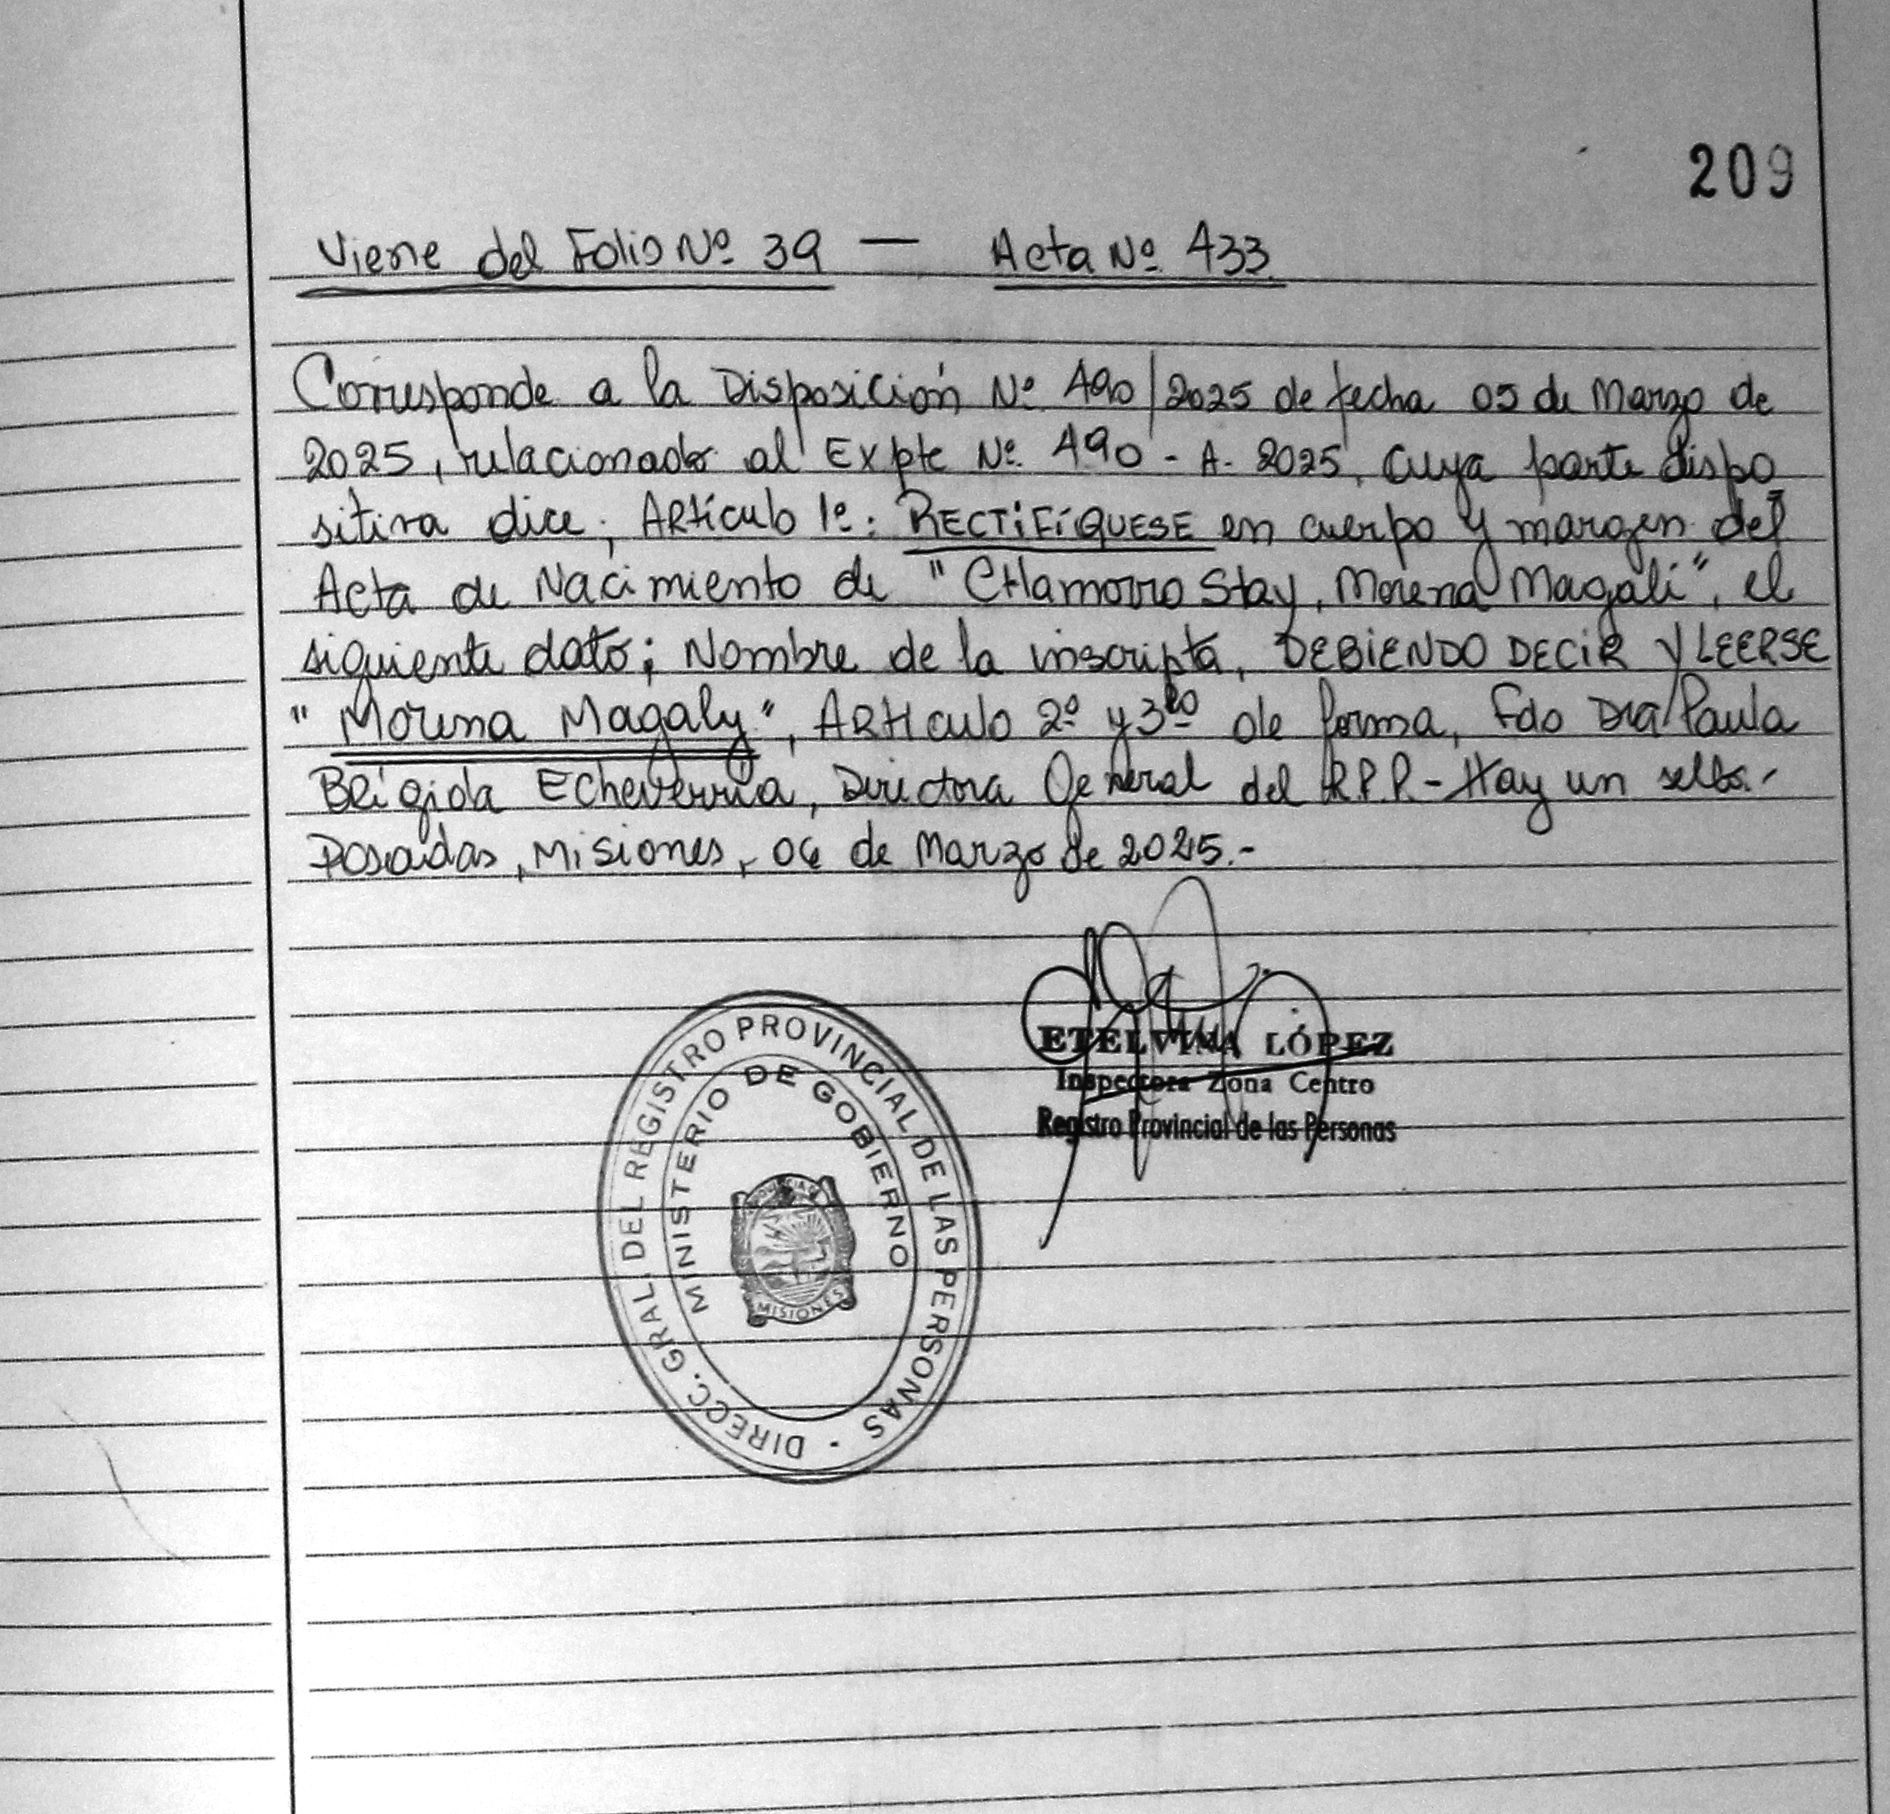 209
Viene del Folio Nº 39 — Acta Nº 433.
Corresponde a la Disposición Nº 490/2025 de fecha 05 de Marzo de
2025, relacionado al Expte Nº 490 - A - 2025, cuya parte dispo
sitiva dice; Artículo 1º: RECTIFÍQUESE en cuerpo y margen del
Acta de Nacimiento de "CHamorro Stay, Morena Magali", el
siguiente dato; Nombre de la inscripta, DEBIENDO DECIR Y LEERSE
"Morena Magaly", ARtículo 2º y 3ro de forma, Fdo Dra Paula
Brígida Echeverria, Directora General del R.P.P. - Hay un sello.-
Posadas, Misiones, 06 de Marzo de 2025.-
ETELVINA LÓPEZ
Inspectora Zona Centro
Registro Provincial de las Personas
DIRECC. GRAL. DEL REGISTRO PROVINCIAL DE LAS PERSONAS
MINISTERIO DE GOBIERNO
PROVINCIA
MISIONES